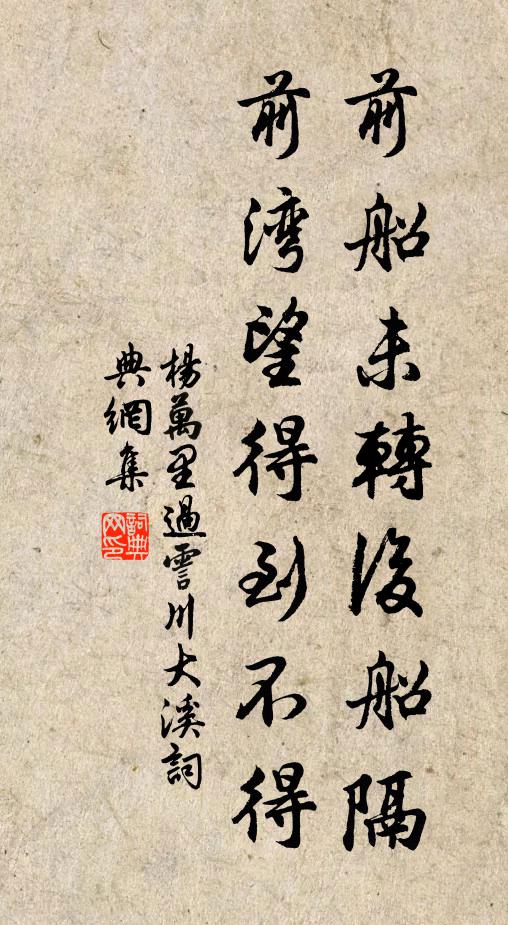 前船未轉後船隔
前湾望得到不得
楊萬里過霅川大溪詞
典網集
詞典网印